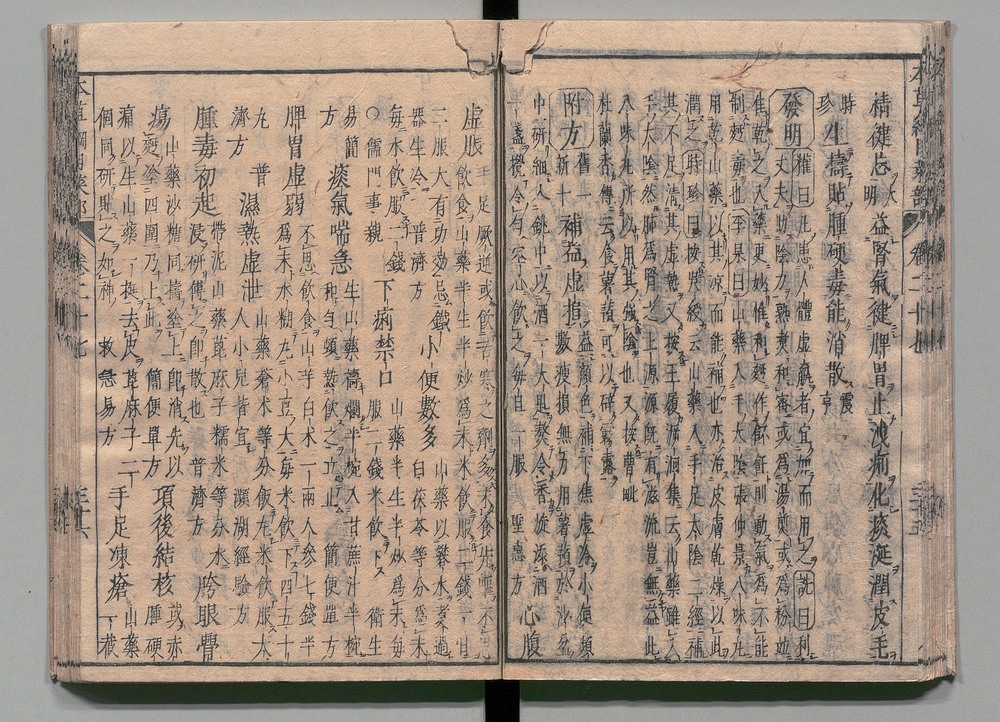 本草綱目菜部 卷二十七
精健忘大明益腎氣健脾胃止洩痢化痰涎潤皮毛時
珍生搗貼腫硬毒能消散震亨
發明權曰凡患人體虛羸者宜加而用之詵曰利
丈夫助陰力熟煮和蜜或爲湯煎或爲粉並
佳乾之入藥更妙惟和麪作餺飥則動氣爲不能
制麪毒也李杲曰山藥入手太陰張仲景八味丸
用乾山藥以其凉而能補也亦治皮膚乾燥以此
潤之時珍曰按吳綬云山藥入手足太陰二經補
其不足清其虛熱又按王履溯洄集云山藥雖入
手太陰然肺爲腎之上源源既有滋流豈無益此
八味丸所以用其強陰也又按曹毗
杜蘭香傳云食薯蕷可以辟霧露
附方舊一新十補益虛損益顏色補下焦虛冷小便頻
數瘦損無力用薯蕷於沙盆
中研細入銚中以酒一大匙熬令香旋添酒
一盞攪令勻空心飲之每旦一服 聖惠方 心腹
虛脹手足厥逆或飲苦寒之劑多未食先嘔不思
飲食山藥半生半炒爲末米飲服二錢一日
二服大有功效忌鐵器生冷 普濟方
小便數多山藥以礬水煮過白茯苓等分爲末
每水飲服二錢○儒門事親
下痢禁口山藥半生半炒爲末每服二錢米飲下 衛生
易簡方 痰氣喘急生山藥搗爛半椀入甘蔗汁半椀
和勻頓熱飲之立止 簡便單方
脾胃虛弱不思飲食山芋白朮一兩人參七錢半
爲末水糊丸小豆大每米飲下四五十
丸 普濟方 濕熱虛泄山藥蒼朮等分飯丸米飲服大
人小兒皆宜 瀕湖經驗方
腫毒初起帶泥山藥蓖麻子糯米等分水
浸研傅之即散也 普濟方 胯眼臖
瘍山藥沙糖同搗塗上即消先以
麪塗四圍乃上此 簡便單方 項後結核或赤腫硬
痛以生山藥一挺去皮蓖麻子二
個同研貼之如神 救急易方 手足凍瘡山藥一截
本草綱目菜部 卷二十七